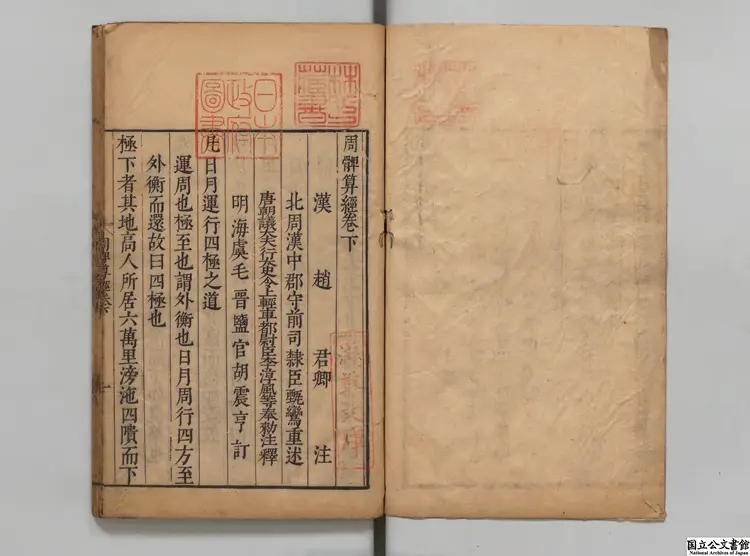 周髀算經卷下
漢 趙 君卿 注
北周漢中郡守前司隸臣甄鸞重述
唐朝議大夫行太史令上輕車都尉臣李淳風等奉勑注釋
明海虞毛晉鹽官胡震亨訂
凡日月運行四極之道
運周也極至也謂外衡也日月周行四方至
外衡而還故曰四極也
極下者其地高人所居六萬里滂沲四隤而下
日本
政府
圖書
国立公文書館
National Archives of Japan